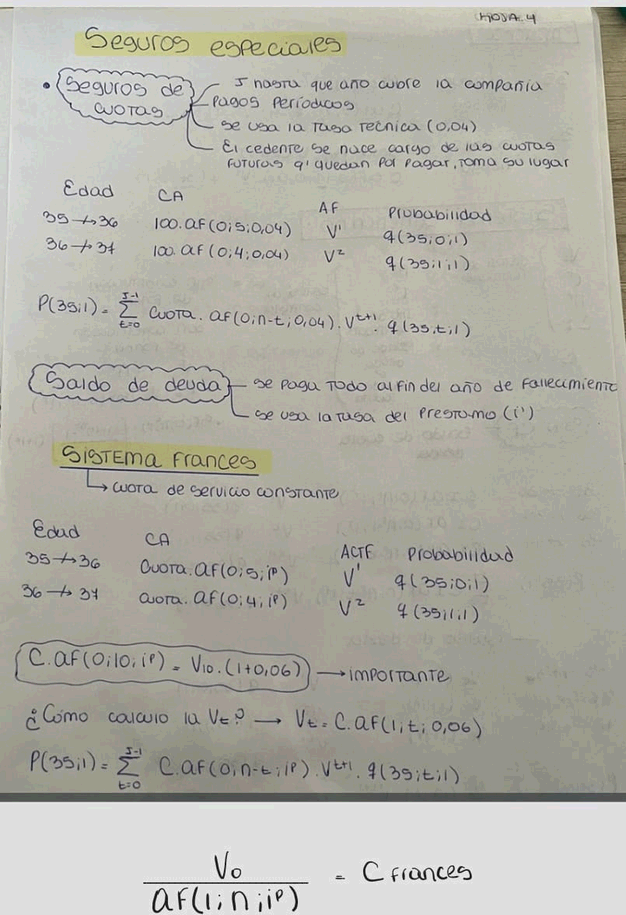 HOJA. 4
Seguros especiales
• Seguros de cuotas
J hasta que año cubre la compañia
Pagos Periodicos
se usa la Tasa Tecnica (0,04)
El cedente se hace cargo de las cuotas
futuras q' quedan por pagar, toma su lugar
Edad CA AF Probabilidad
35 → 36 100. aF(0;5;0,04) V¹ q(35;0;1)
36 → 37 100. aF(0;4;0,04) V² q(35;1;1)
P(35;1) = J-1 ∑ t=0 Cuota. aF(0;n-t;0,04). V^t+1. q(35;t;1)
Saldo de deuda
se paga Todo al fin del año de Fallecimiento
se usa la tasa del Prestamo (i')
SISTEMA FRANCES
↳ cuota de servicio constante
Edad CA ACTF Probabilidad
35 → 36 Cuota. aF(0;5;iᵖ) V¹ q(35;0;1)
36 → 37 cuota. aF(0;4;iᵖ) V² q(35;1;1)
C. aF(0;10;iᵖ) = V₁₀. (1+0,06) → importante
¿Como calculo la Vt? → Vt = C. aF(1;t;0,06)
P(35;1) = J-1 ∑ t=0 C. aF(0;n-t;iᵖ). V^t+1. q(35;t;1)
V₀ / aF(1;n;iᵖ) = C frances